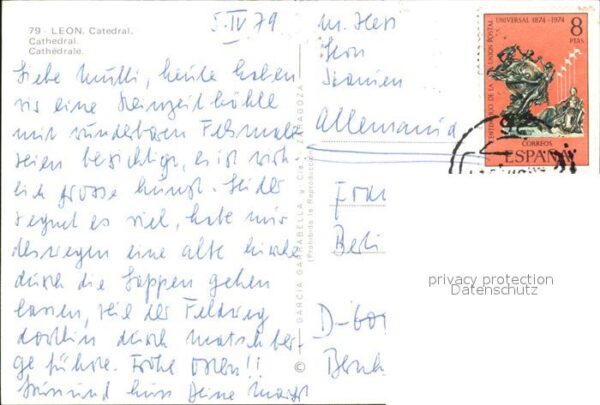 79 - LEON. Catedral.
Cathedral.
Cathédrale.
5. IV 79
Liebe Mutti, heute haben
wir eine Steinzeithöhle
mit wunderbaren Felsmale
reien besichtigt, es ist wirk
lich grosse Kunst. Leider
regnet es viel, habe mir
deswegen eine alte Kirche
durch die Lappen gehen
lassen, weil der Feldweg
dorthin durch Matschber
ge führte. Frohe Ostern!!
Deine
© GARCIA GARRABELLA y Cía. - ZARAGOZA
(Prohibida la Reproducción)
M. Hess
Leon
Spanien
Allemania
Frau
Berli
D-
CENTENARIO DE LA UNION POSTAL UNIVERSAL 1874-1974
8
PTAS.
CORREOS
ESPAÑA
privacy protection
Datenschutz